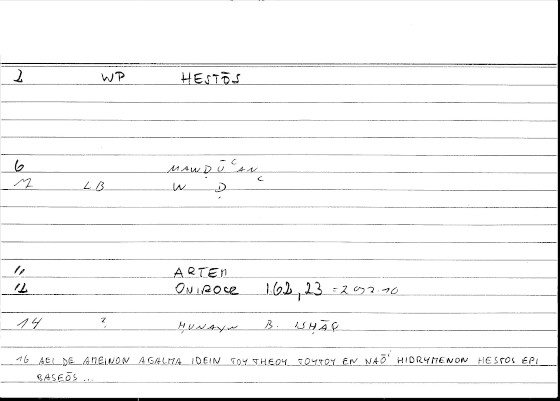 1 WP HESTŌS
6 MAWḌŪʿAN
12 LB W Ḍ ʿ
11 ARTEM
12 ONIROCR 162,23 =292.10
14 ? ḤUNAYN B. ISḤĀQ
16 AEI DE AMEINON AGALMA IDEIN TOY THEOY TOYTOY EN NAŌ' HIDRYMENON HESTOS EPI
BASEŌS ...